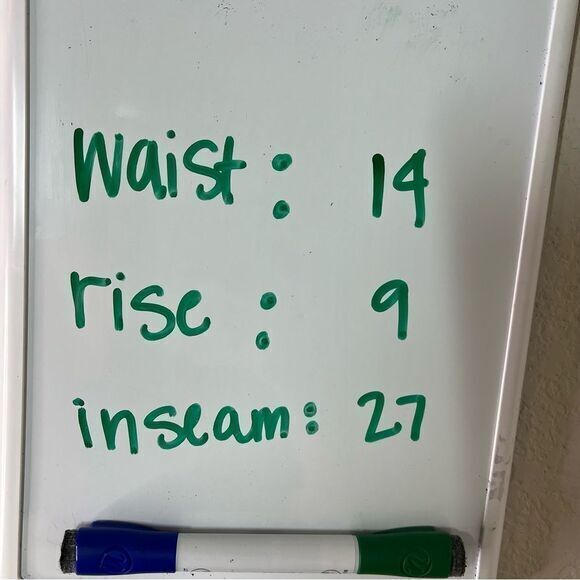 Waist: 14
rise: 9
inseam: 27